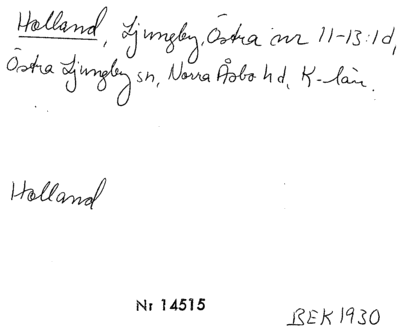 Holland, Ljungby, Östra nr 11-13:1d,
Östra Ljungby sn, Norra Åsbo hd, K-län.
Holland
Nr 14515
BEK 1930